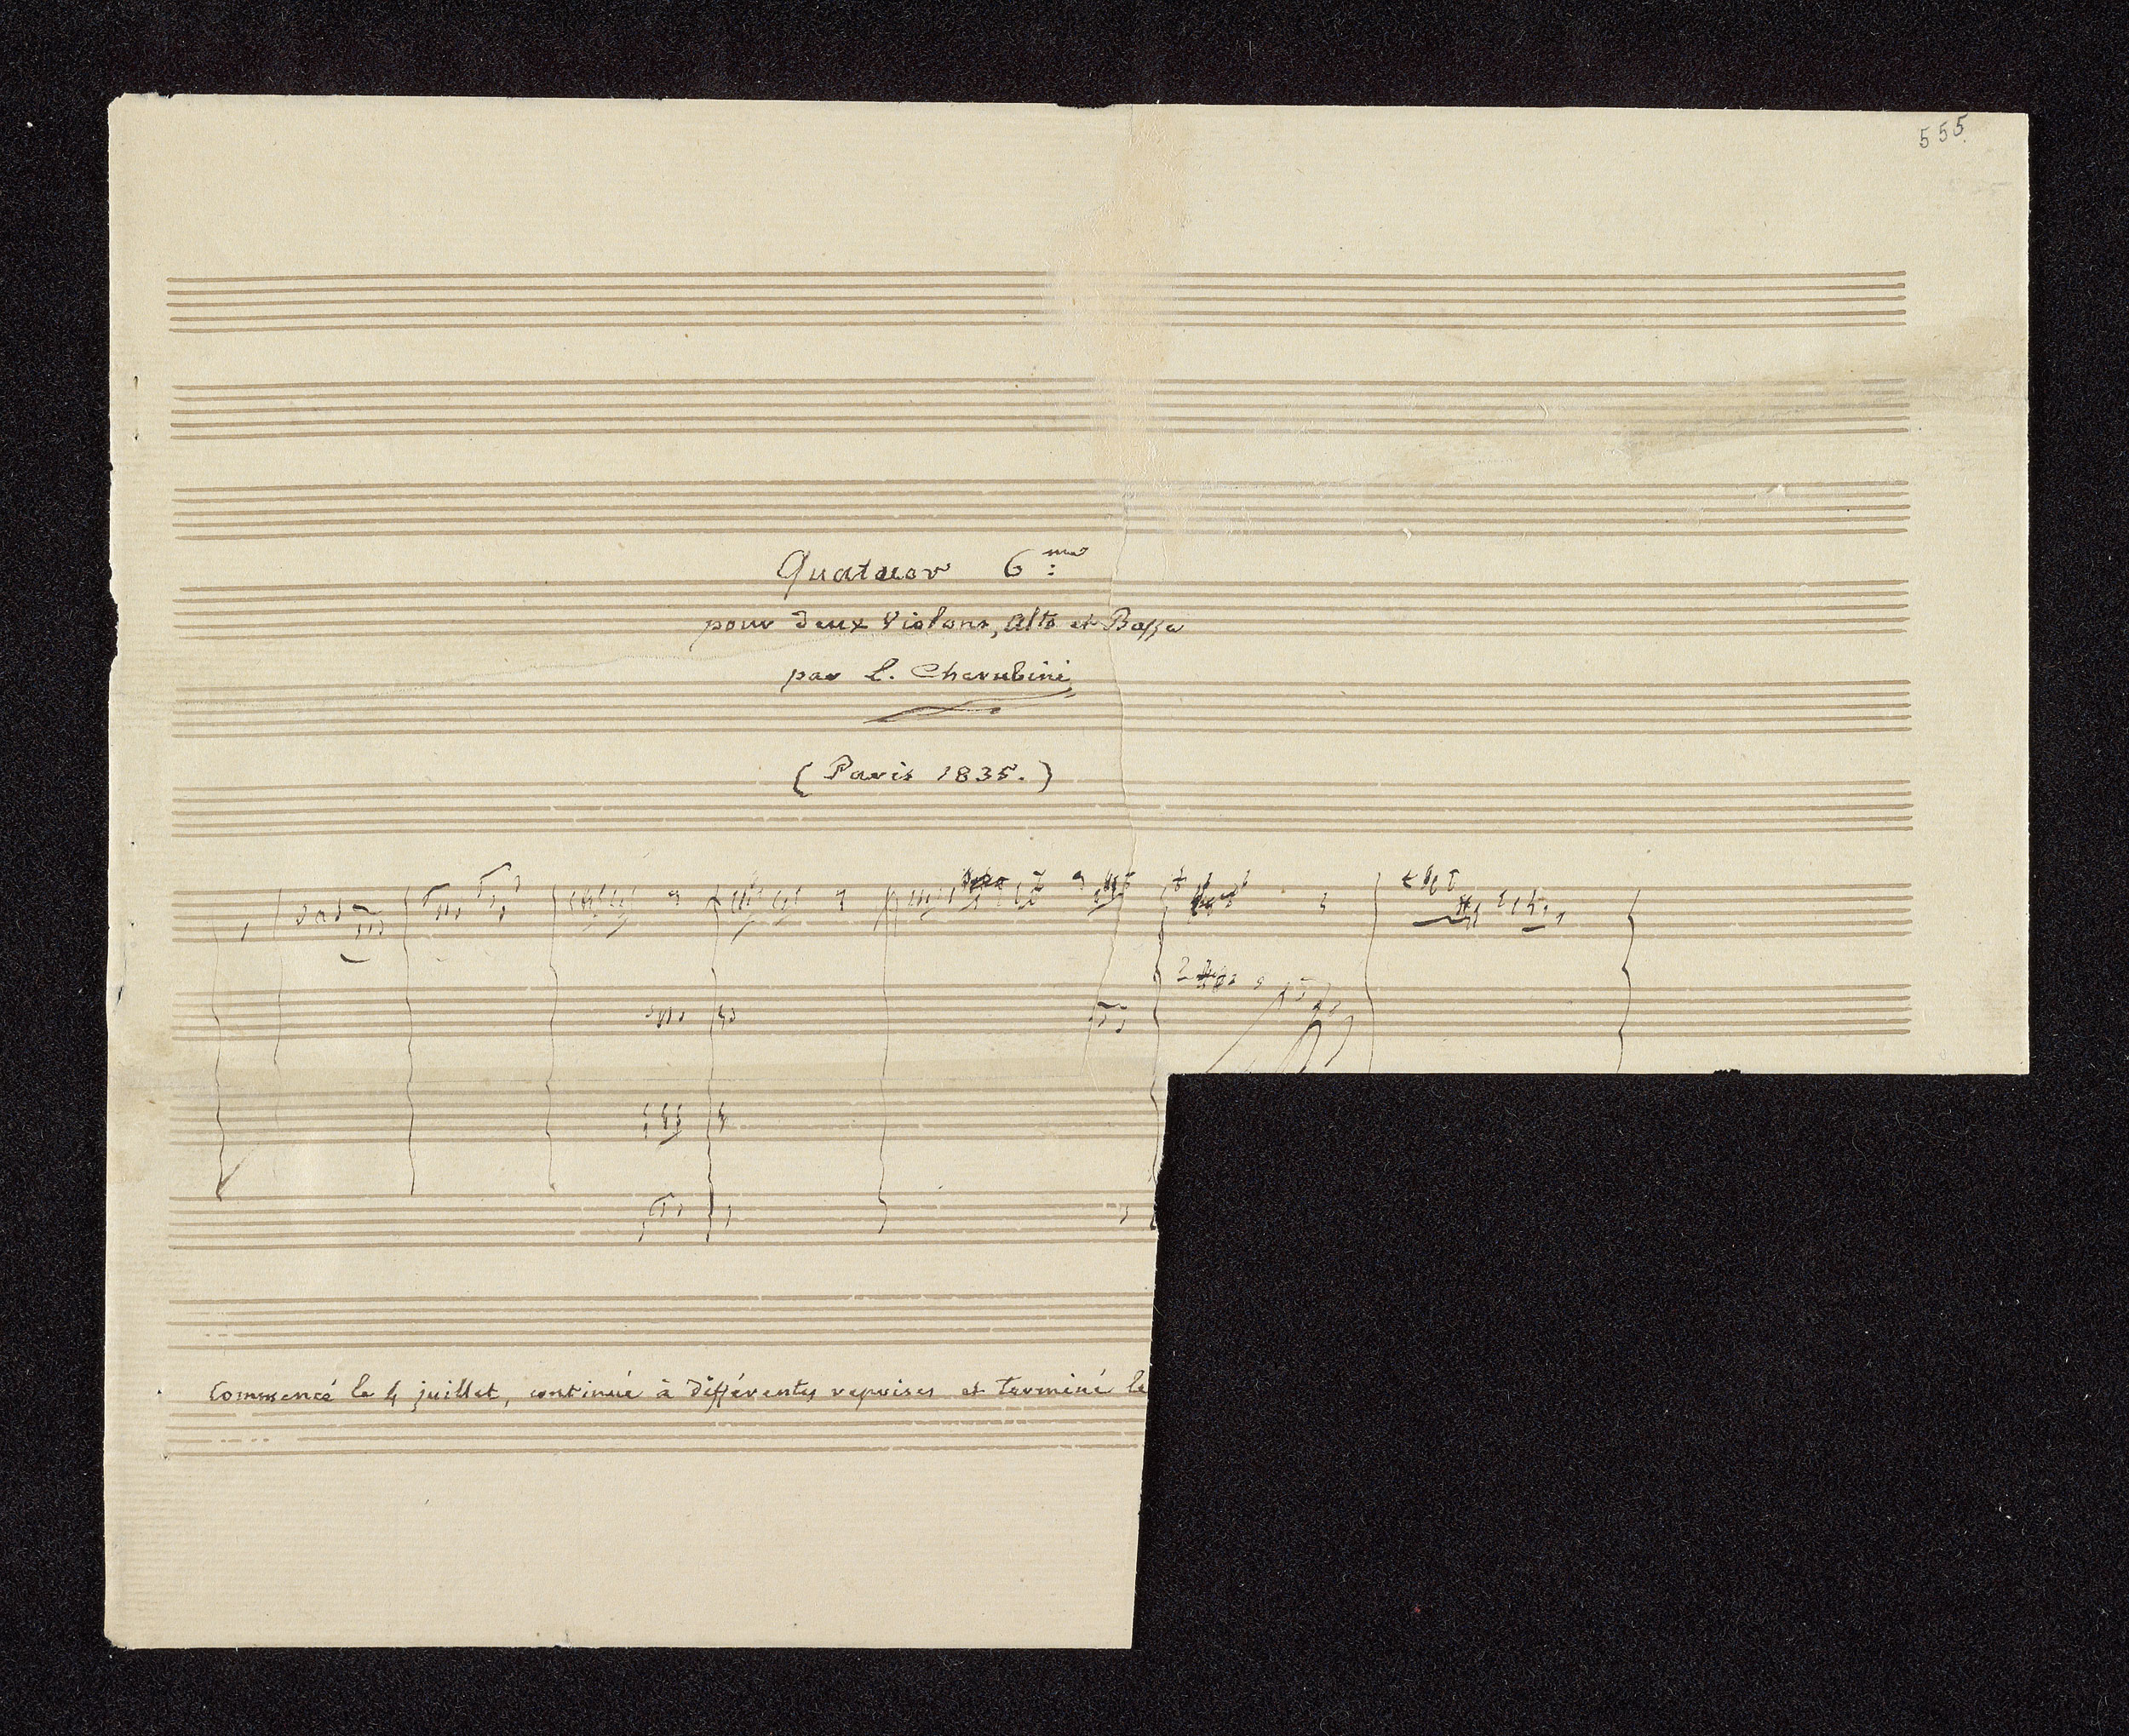 555.
Quatuor 6me:
pour deux Violons, Alto et Basse
par L. Cherubini
(Paris 1835.)
Commencé le 4 juillet, continué à différentes reprises et terminé le